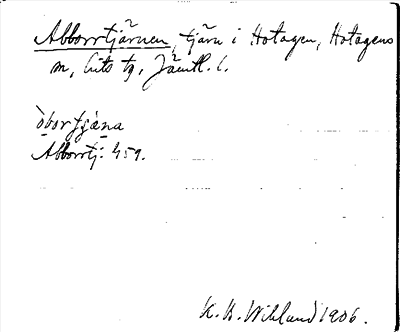 Abborrtjärnen, tjärn i Hotagen, Hotagens
m, Lits tg, Jämtl. l.
òbortjä̀na
Abborrtj. 459.
K. B. Wiklund 1906.